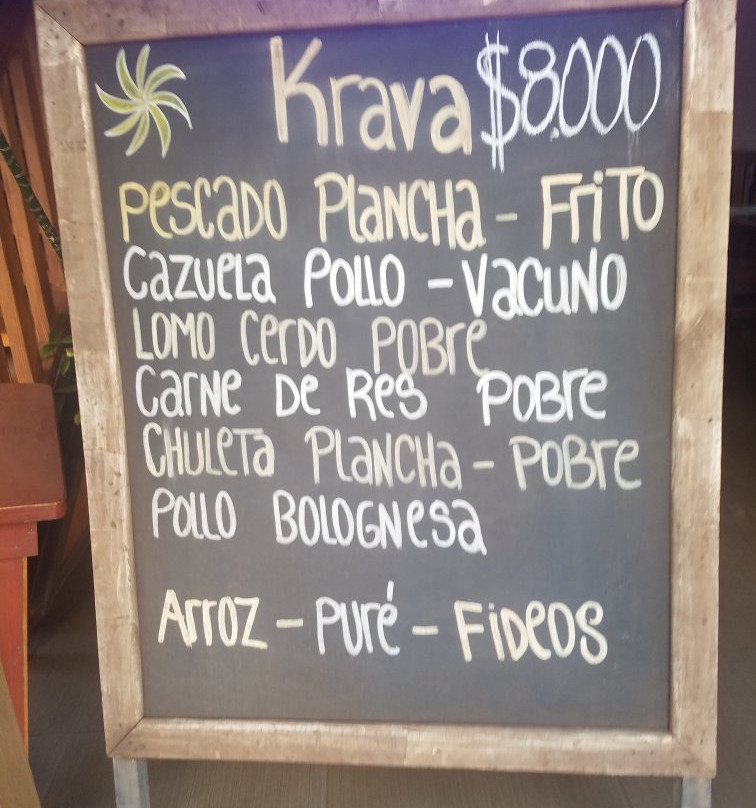 Krava $8.000
Pescado Plancha - Frito
Cazuela Pollo - Vacuno
Lomo Cerdo Pobre
Carne de Res Pobre
Chuleta Plancha - Pobre
Pollo Bolognesa
Arroz - Puré - Fideos